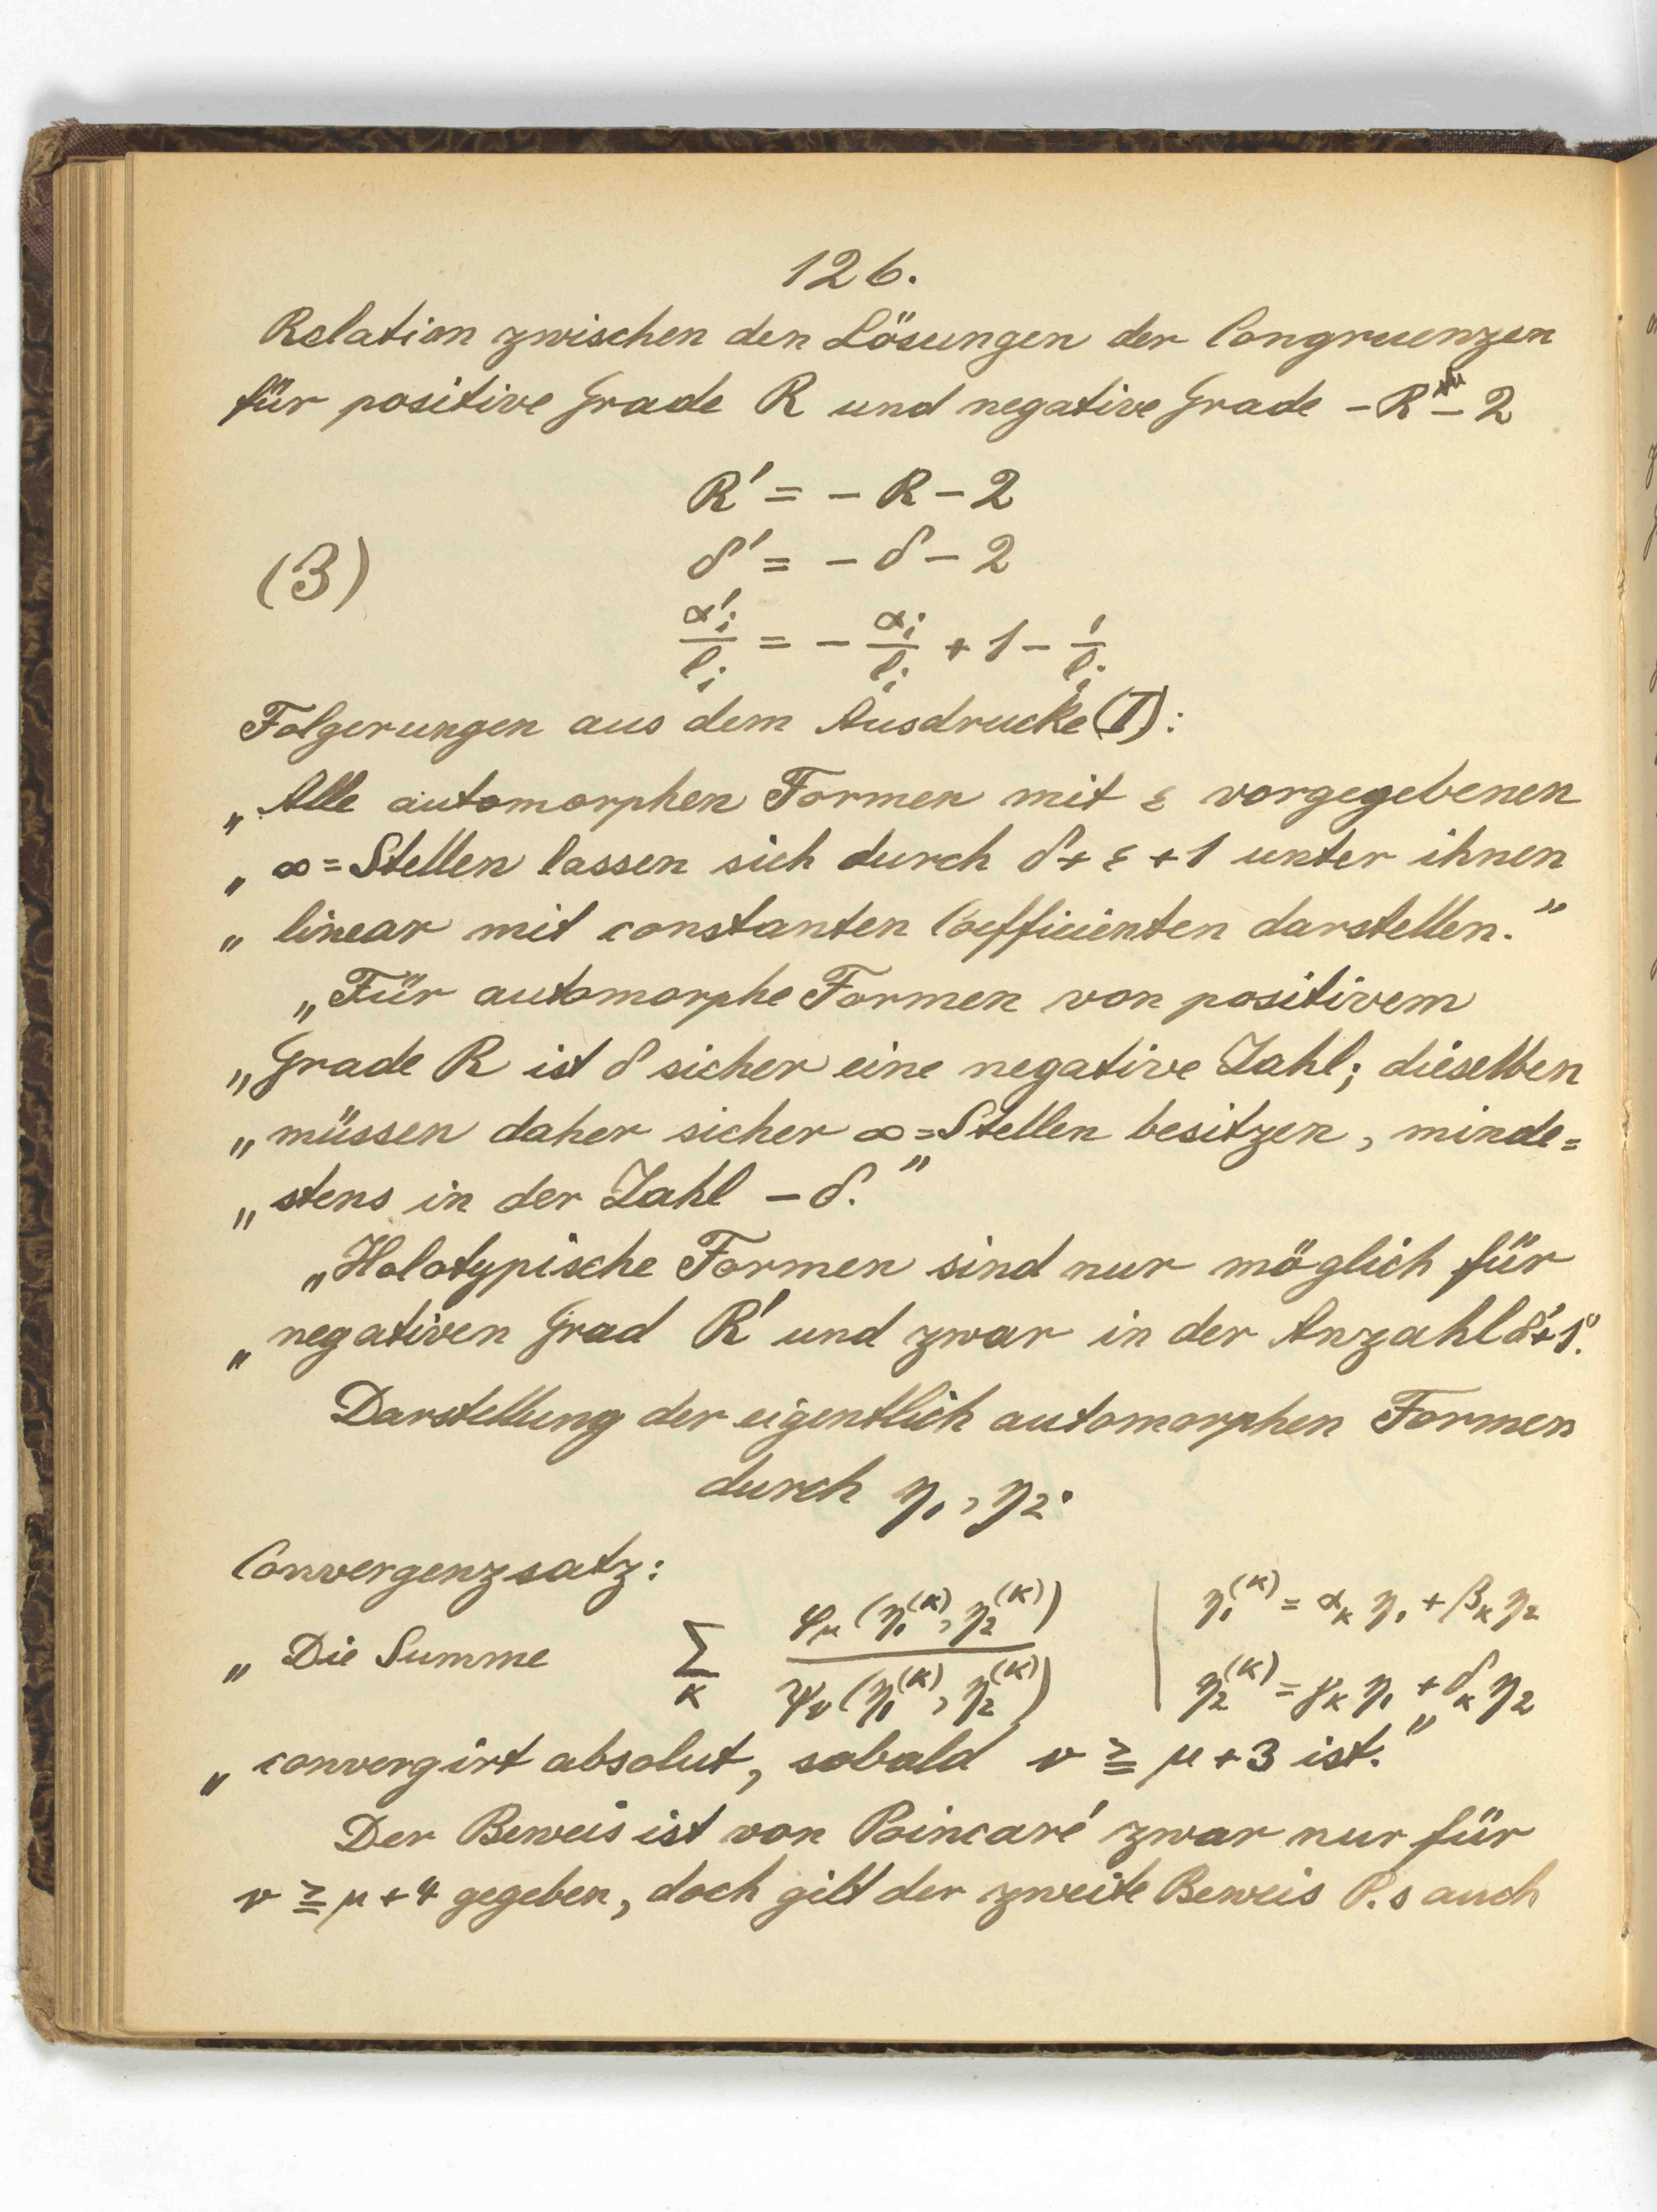 126.
Relation zwischen den Lösungen der Congruenzen
für positive Grade R und negative Grade - R - 2
R' = - R - 2
(3) δ' = - δ - 2
α'ᵢ/lᵢ = - αᵢ/lᵢ + 1 - 1/lᵢ
Folgerungen aus dem Ausdrucke (I):
„Alle automorphen Formen mit ε vorgegebenen
„ ∞=Stellen lassen sich durch δ + ε + 1 unter ihnen
„ linear mit constanten Coefficienten darstellen.”
„Für automorphe Formen von positivem
„Grade R ist δ sicher eine negative Zahl; dieselben
„müssen daher sicher ∞=Stellen besitzen, minde=
„stens in der Zahl - δ.”
„Holotypische Formen sind nur möglich für
„negativen Grad R' und zwar in der Anzahl δ'+1.”
Darstellung der eigentlich automorphen Formen
durch η₁, η₂.
Convergenzsatz:
„Die Summe Σ_κ φ_μ(η₁^(κ), η₂^(κ)) / ψ_ν(η₁^(κ), η₂^(κ)) | η₁^(κ) = α_κ η₁ + β_κ η₂
η₂^(κ) = γ_κ η₁ + δ_κ η₂
„convergirt absolut, sobald ν ≧ μ + 3 ist.”
Der Beweis ist von Poincaré zwar nur für
ν ≧ μ + 4 gegeben, doch gilt der zweite Beweis P.s auch